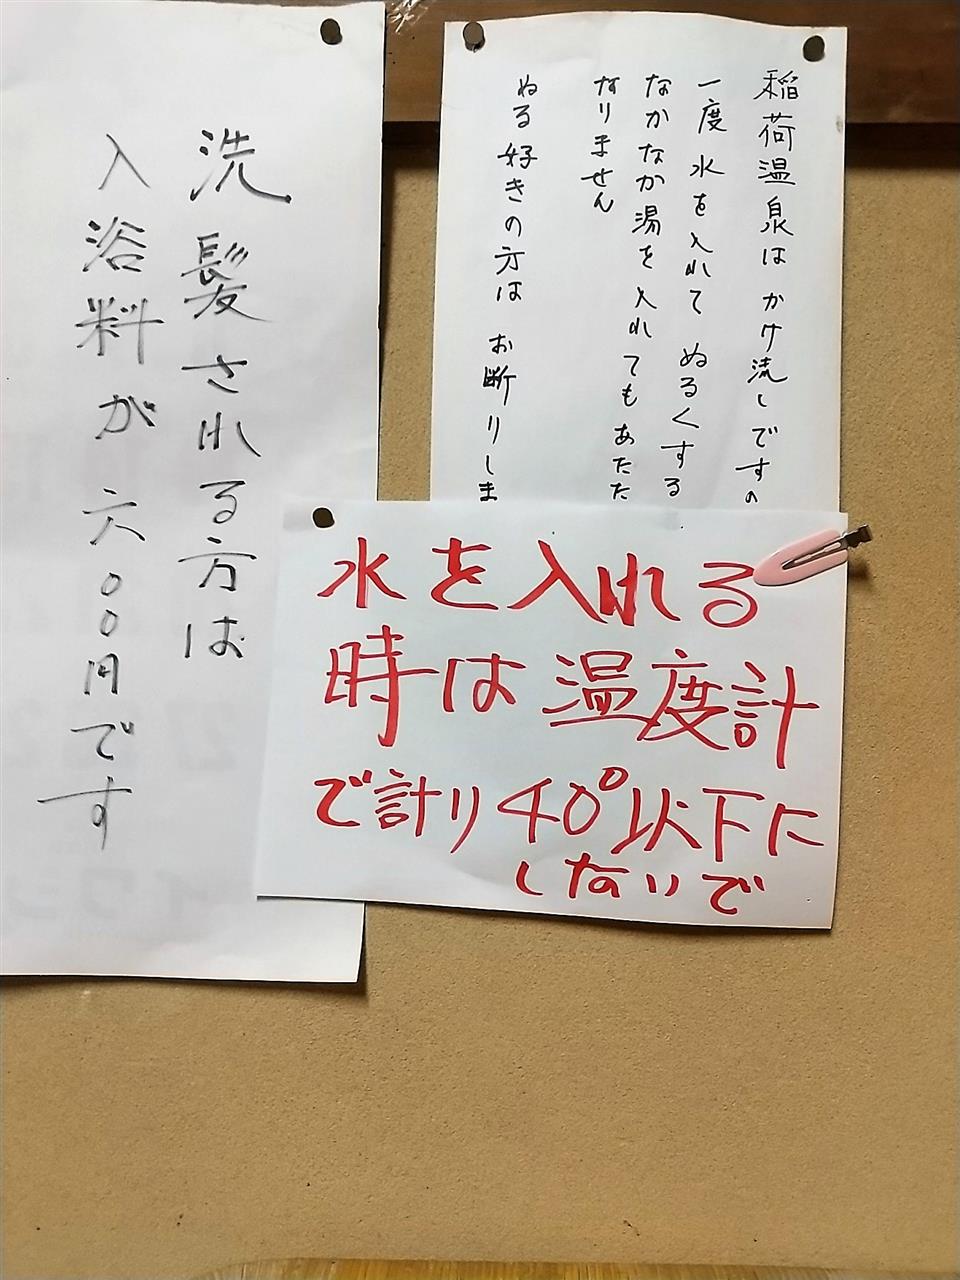 洗髪される方は
入浴料が六〇〇円です
稲荷温泉はかけ流しですの
一度水を入れてぬるくする
なかなか湯を入れてもあたた
なりません
ぬる好きの方はお断りしま
水を入れる
時は温度計
で計り40°以下に
しないで